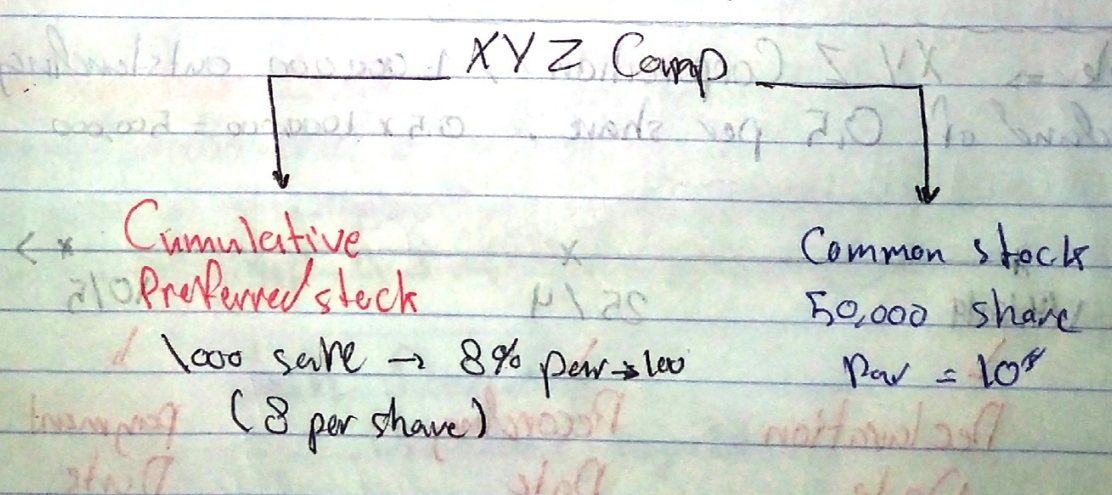 XYZ Comp
Cumulative
Preferred stock
1000 sahre → 8% par → 100
(8 per share)
Common stock
50,000 share
Par = 10$